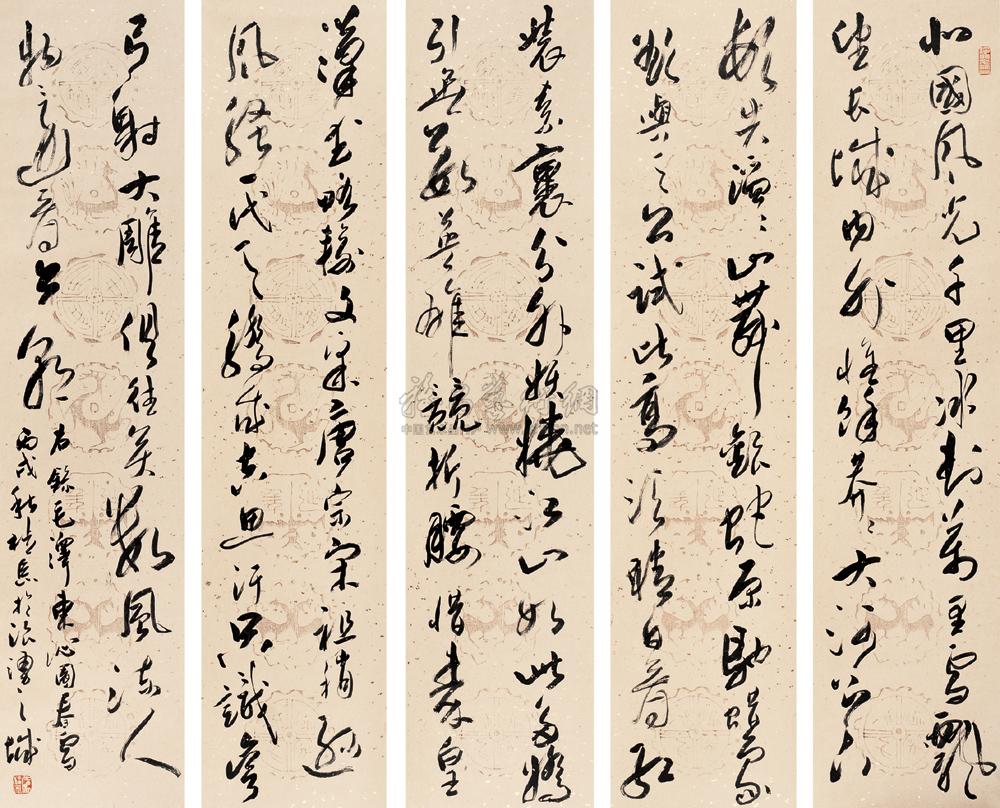 北國風光千里冰封萬里雪飄
望長城內外惟餘莽〻大河上下
頓失滔〻山舞銀蛇原馳蠟象
欲與天公試比高須晴日看紅
裝素裹分外妖嬈江山如此多嬌
引無數英雄競折腰惜秦皇
漢武略輸文采唐宗宋祖稍遜
風騷一代天驕成吉思汗只識彎
弓射大雕俱往矣數風流人
物還看今朝
右錄毛澤東沁園春雪
丙戌秋於之城